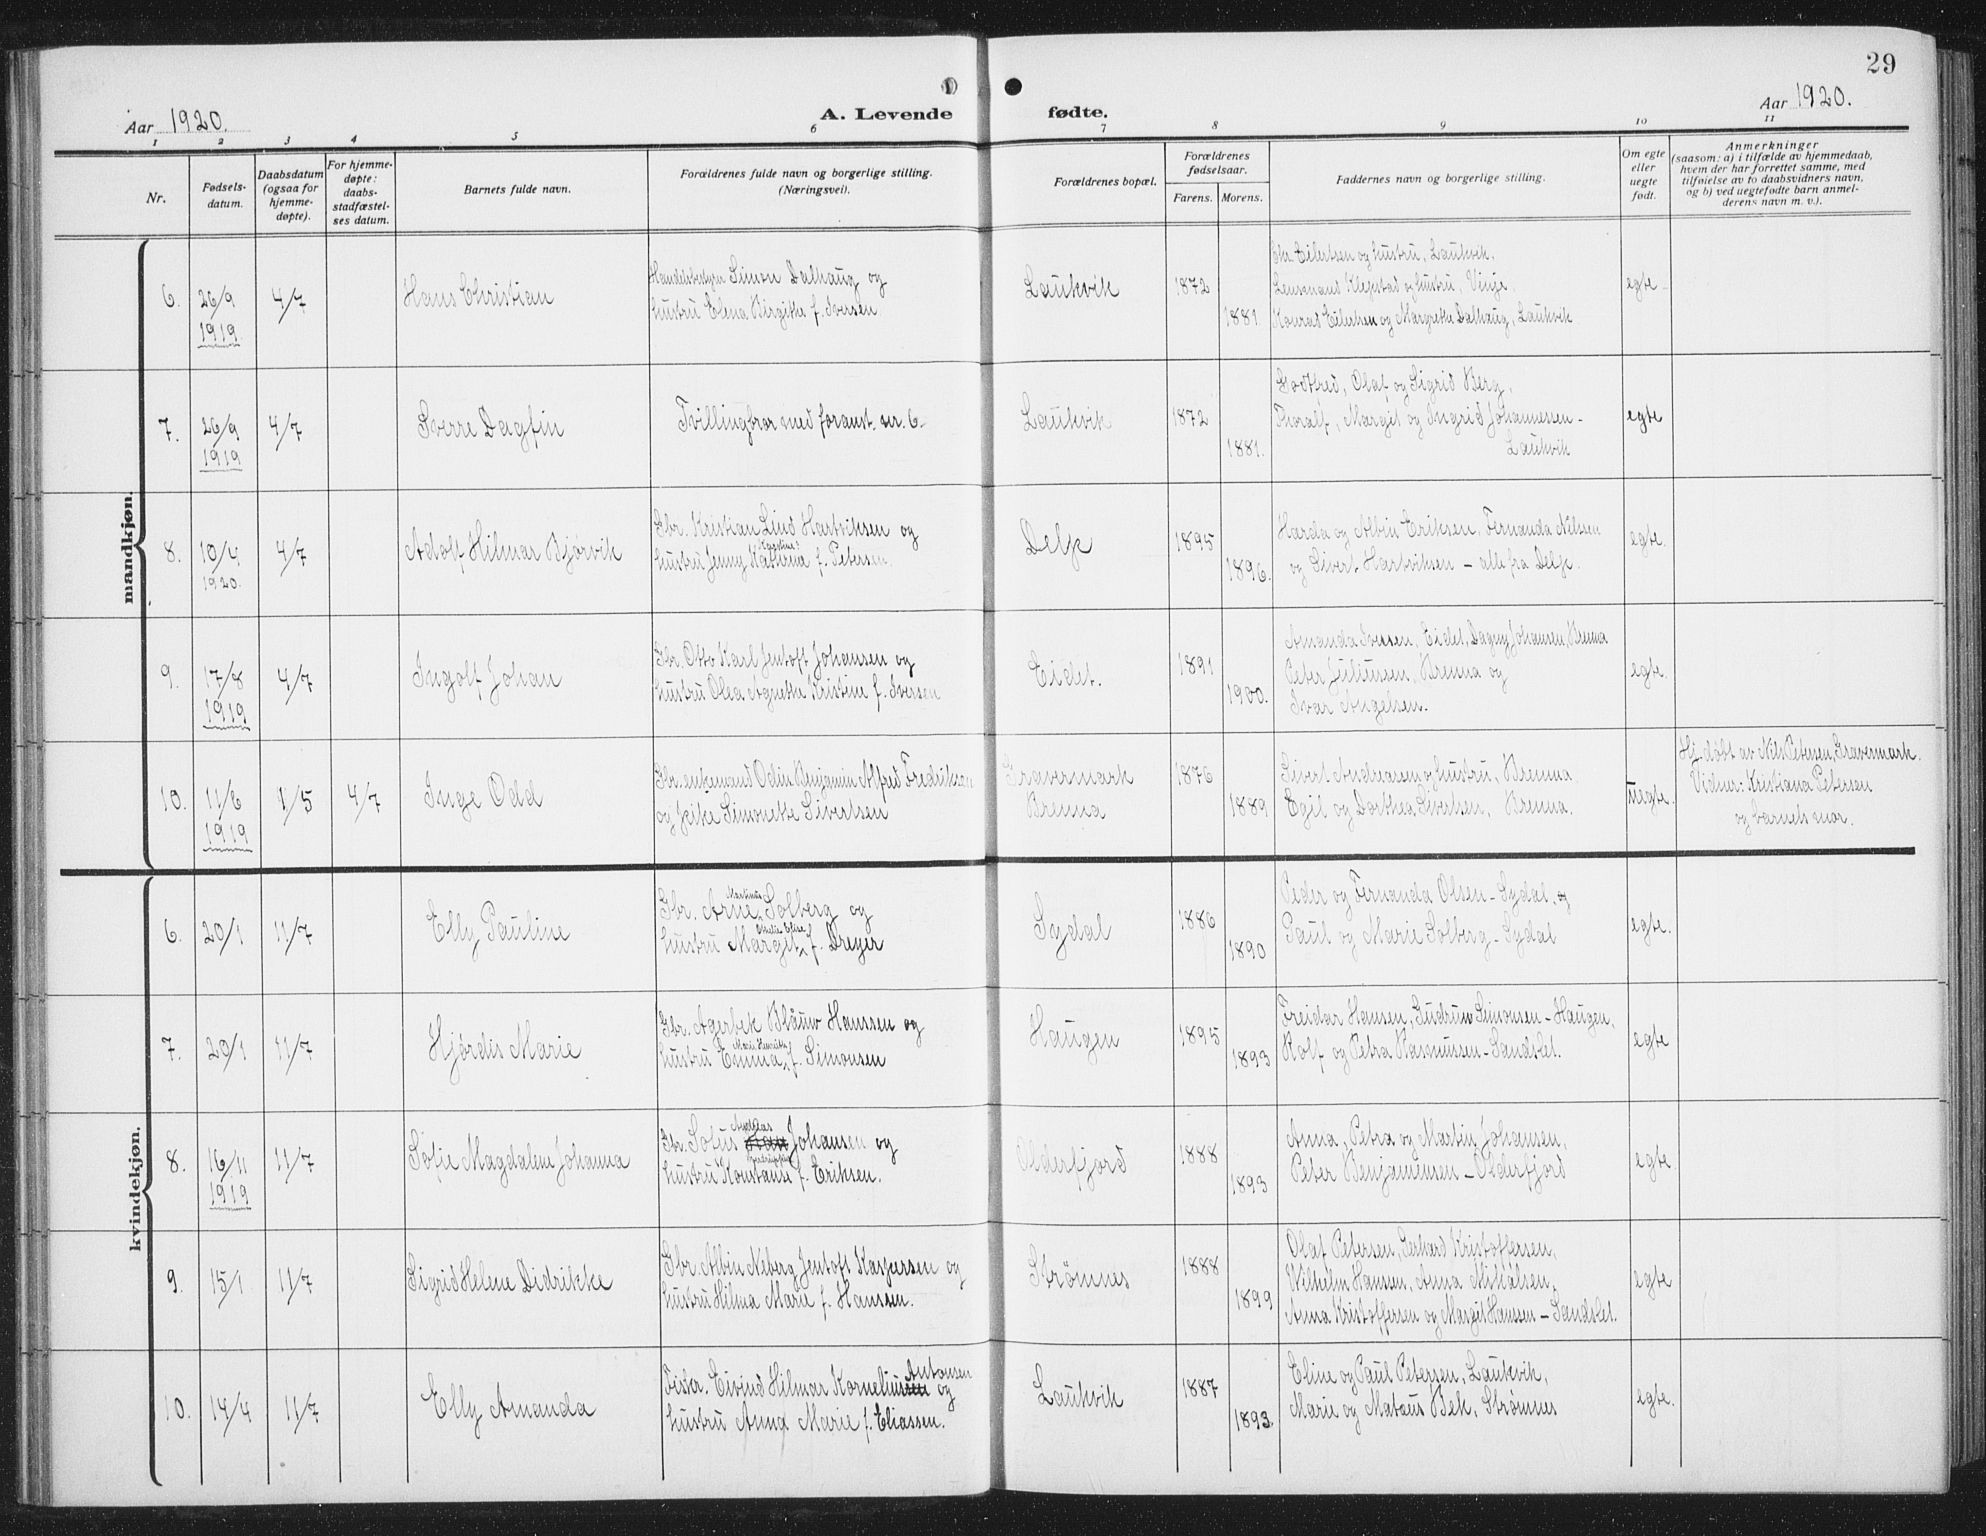 29
Aar 1920. A. Levende fødte. Aar 1920.
1 2 3 4 5 6 7 8 9 10 11
Nr.
Fødsels-
datum.
Daabsdatum
(ogsaa for
hjemme-
døpte).
For hjemme-
døpte:
daabs-
stadfæstel-
ses datum.
Barnets fulde navn.
Forældrenes fulde navn og borgerlige stilling.
(Næringsvei).
Forældrenes bopæl.
Forældrenes
fødselsaar.
Farens. Morens.
Faddernes navn og borgerlige stilling.
Om egte
eller
uegte
født.
Anmerkninger
(saasom: a) i tilfælde av hjemmedaab,
hvem der har forrettet samme, med
tilføielse av to daabsvidners navn,
og b) ved uegtefødte barn anmel-
derens navn m. v.).
mandkjøn.
6. 26/9 1919. 4/7 Hans Christian
Handelsbestyrer Simon Dalhaug og
hustru Elena Birgitte f. Iversen
Laukvik 1872 1881
Eilertsen og hustru, Laukvik,
Klegstad og hustru, Vinje.
Konrad Eilertsen og Margrethe Dalhaug, Laukvik
egte
7. 26/9 1919 4/7 Sverre Dagfin
Tvillingbror med foranst. nr. 6
Laukvik 1872 1881.
Godtfred, Olaf og Sigrid Berg,
Thoralf, Margit og Ingrid Johannessen -
Laukvik
egte
8. 10/4 1920. 4/7 Adolf Hilmar Bjørvik
Gbr. Kristian Lind Hartviksen og
hustru Jenny Katrina f. Petersen.
Delp 1895 1896.
Harda og Albin Eriksen, Fernanda Nilsen
og Sivert Hartviksen - alle fra Delp.
egte.
9. 17/8 1919 4/7 Ingolf Johan
Gbr. Otto Karl Jentoft Johansen og
hustru Olea Agnethe Kristine f. Iversen
Eidet. 1891 1900.
Amanda Iversen, Eidet, Dagny Johansen, Brenna
Peter Juliussen, Brenna og
Ivar Angelsen.
egte.
10. 11/6 1919 1/5 4/7 Inge Odd
Gbr. enkemand Odin Benjamin Alfred Fredriksen
og pike Simonette Sivertsen
Gravermark
Brenna
1876 1889
Sivert Andreassen og hustru, Brenna.
Egil og Dorthea Sivertsen, Brenna.
uegte.
Hj. døbt av Nils Petersen, Gravermark.
Vidner: Kristiana Petersen
og barnets mor.
kvindekjøn.
6. 20/1 11/7 Elly Pauline
Martinus
Gbr. Arne Solberg og
Amalie Eline
hustru Margit f. Dreyer
Sydal 1886 1890
Peder og Fernanda Olsen - Sydal, og
Paul og Marie Solberg - Sydal
egte.
7. 20/1 11/7 Hjørdis Marie
Gbr. Agerbek Blauw Hanssen og
Marie Henriette
hustru Emma f. Simonsen
Haugen 1895 1893
Freidar Hansen, Gudrun Simonsen - Haugen,
Rolf og Petra Rasmussen - Sandslet.
egte
8. 16/11 1919 11/7 Sofie Magdalene Johanna
Andreas
Gbr. Sofus Johansen og
hustru Konstanse f. Eriksen.
Olderfjord 1888 1893
Anna, Petra og Martin Johansen,
Peter Benjaminsen - Olderfjord
egte
9. 15/1 11/7 Sigrid Helene Didrikke
Gbr. Albin Neberg Jentoft Kaspersen og
hustru Hilma Marie f. Hanssen.
Strømnes 1888 1899
Olaf Petersen, Gerhard Kristoffersen,
Wilhelm Hansen, Anna Mikalsen,
Anna Kristoffersen og Margit Hanssen - Sandslet.
egte
10. 14/4 11/7 Elly Amanda
Antonsen
Fisker. Eivind Hilmar Korneliussen og
hustru Anna Marie f. Eliassen.
Laukvik 1887 1893.
Eline og Paul Petersen, Laukvik,
Marie og Mataus Bek, Strømnes
egte.